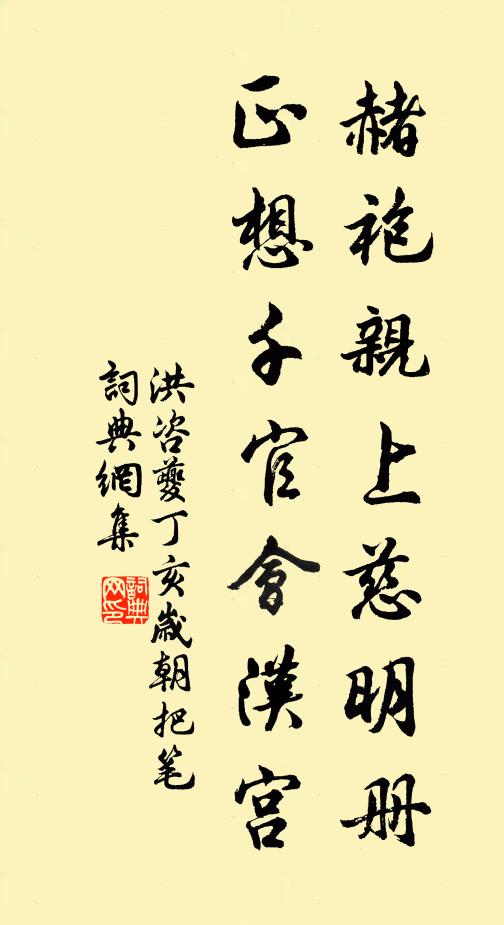 赭袍親上慈明册
正想千官會漢宫
洪咨夔丁亥歲朝把笔
詞典網集
詞典
网印